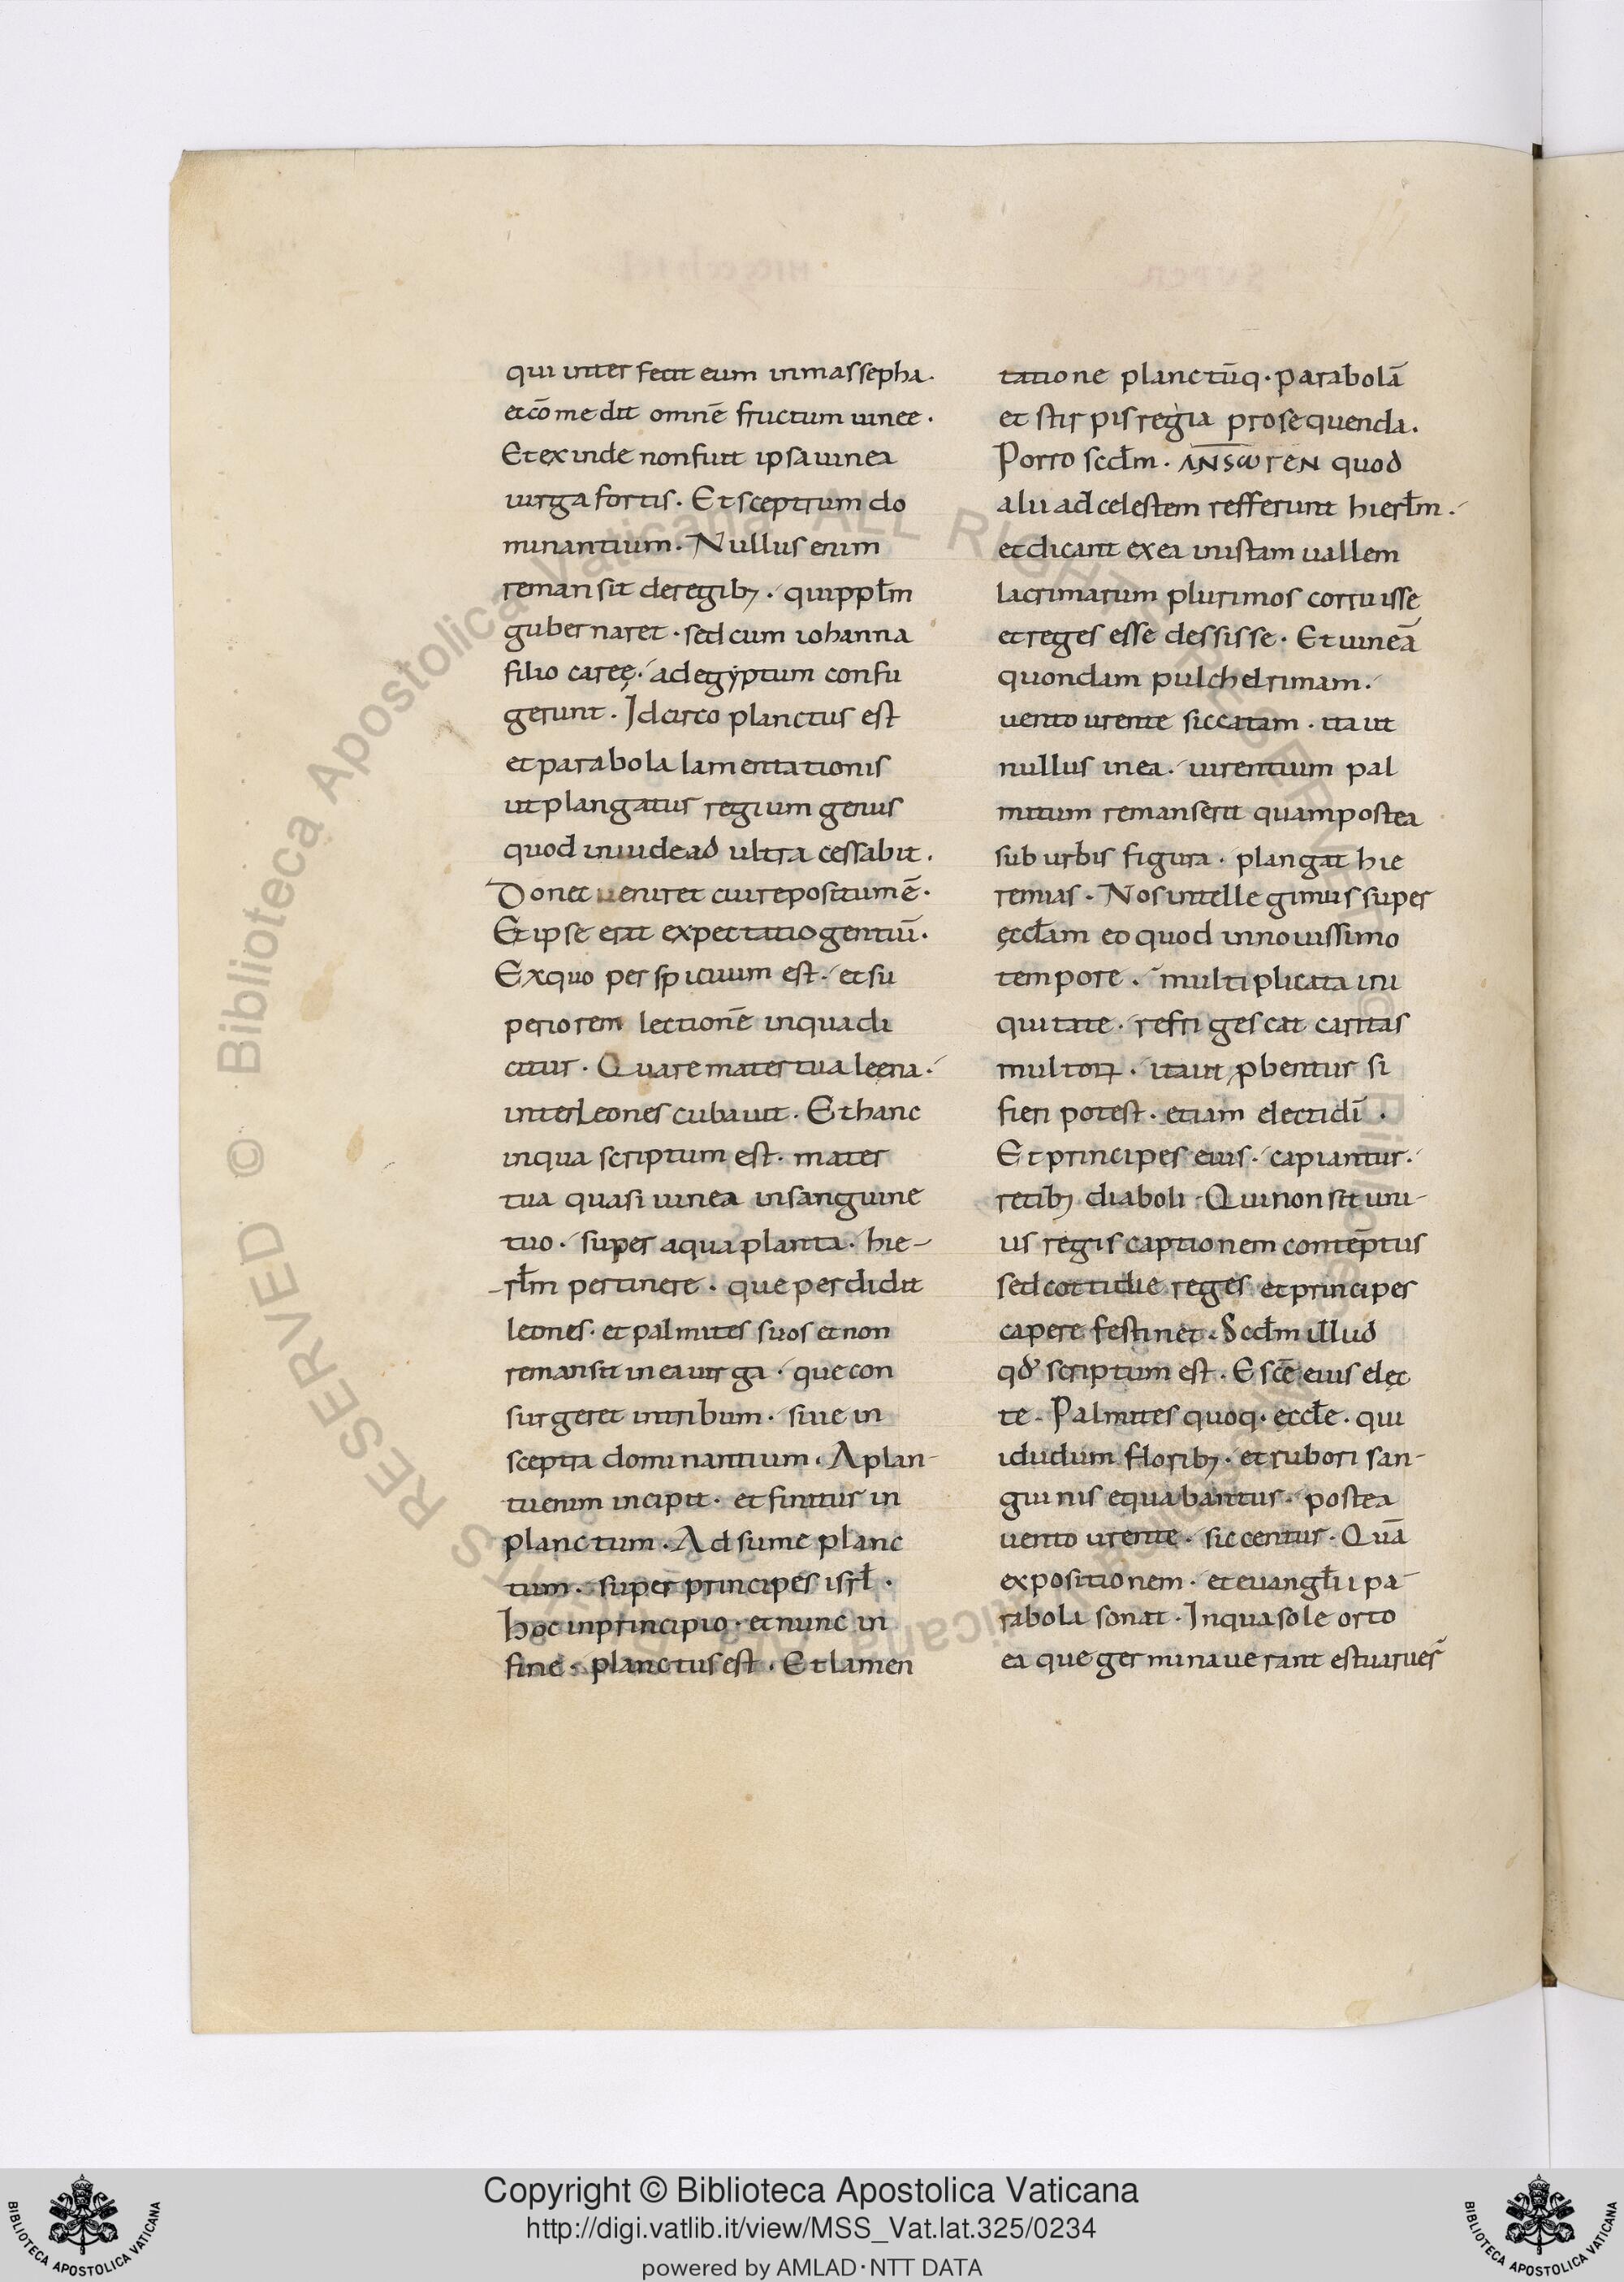 qui inter fecit eum inmassepha.
etcōmedit omnē fructum uinee.
Etexinde nonfuit ipsauinea
uirga fortis. Et sceptrum do
minantium. Nullus enim
remansit deregib; . quippl̄m
gubernaret . sed cum iohanna
filio careę. ad egyptum confu
gerunt. Idcirco planctus est
et parabola lamentationis
ut plangatur regium genus
quod iniudead ultra cessabit.
Donec ueniret cui repositum ē.
Et ipse erat expectatio gentiū.
Exquo perspicuum est. et su
periorem lectionē inqua di
citur. Quare mater tua leęna.
inter Leones cubauit. Et hanc
inqua scriptum est. mater
tua quasi uinea insanguine
tuo. super aqua planta. hie-
rl̄m pertinere. que perdidit
leones. et palmites suos et non
remansit in ea uirga. que con
surgeret intribum. siue in
sceptra dominantium. A plan-
tu enim incipit. et finitur in
planctum. Adsume planc
tum. super principes isrl̄.
hoc inprincipio. et nunc in
fine. planctus est. Et lamen
tatione planctūq. parabolā
et stirpis regia prosequenda.
Porro scd̄m. ANSωΓEN quod
alii ad celestem refferunt hierl̄m.
et dicant ex ea inistam uallem
lacrimarum plurimos corruisse
et reges esse dessisse. Et uineā
quondam pulchdrimam.
uento urente siccatam. ita ut
nullus inea. uirentium pal
mitum remanserit quam postea
sub urbis figura. plangat hie
remias. Nos intellegimus super
ęccl̄am eo quod innouissimo
tempore. multiplicata ini
quitate. refrigescat caritas
multoꝝ. ita ut pbentur si
fieri potest. etiam electi dī.
Et principes eius. capiantur.
retib; diaboli. Qui non sit uni-
us regis captionem contēptus
sed cottidie reges et principes
capere festinet. Scd̄m illud
qđ scriptum est. Escē eius elęc
te. Palmites quoq. eccl̄e. qui
idudum florib; . et rubori san-
guinis equabantur. postea
uento urente. siccentur. Quā
expositionem. et euangl̄ii pa
rabola sonat. Inqua sole orto
ea que germinauerant estuaruer̄
Copyright © Biblioteca Apostolica Vaticana
http://digi.vatlib.it/view/MSS_Vat.lat.325/0234
powered by AMLAD·NTT DATA